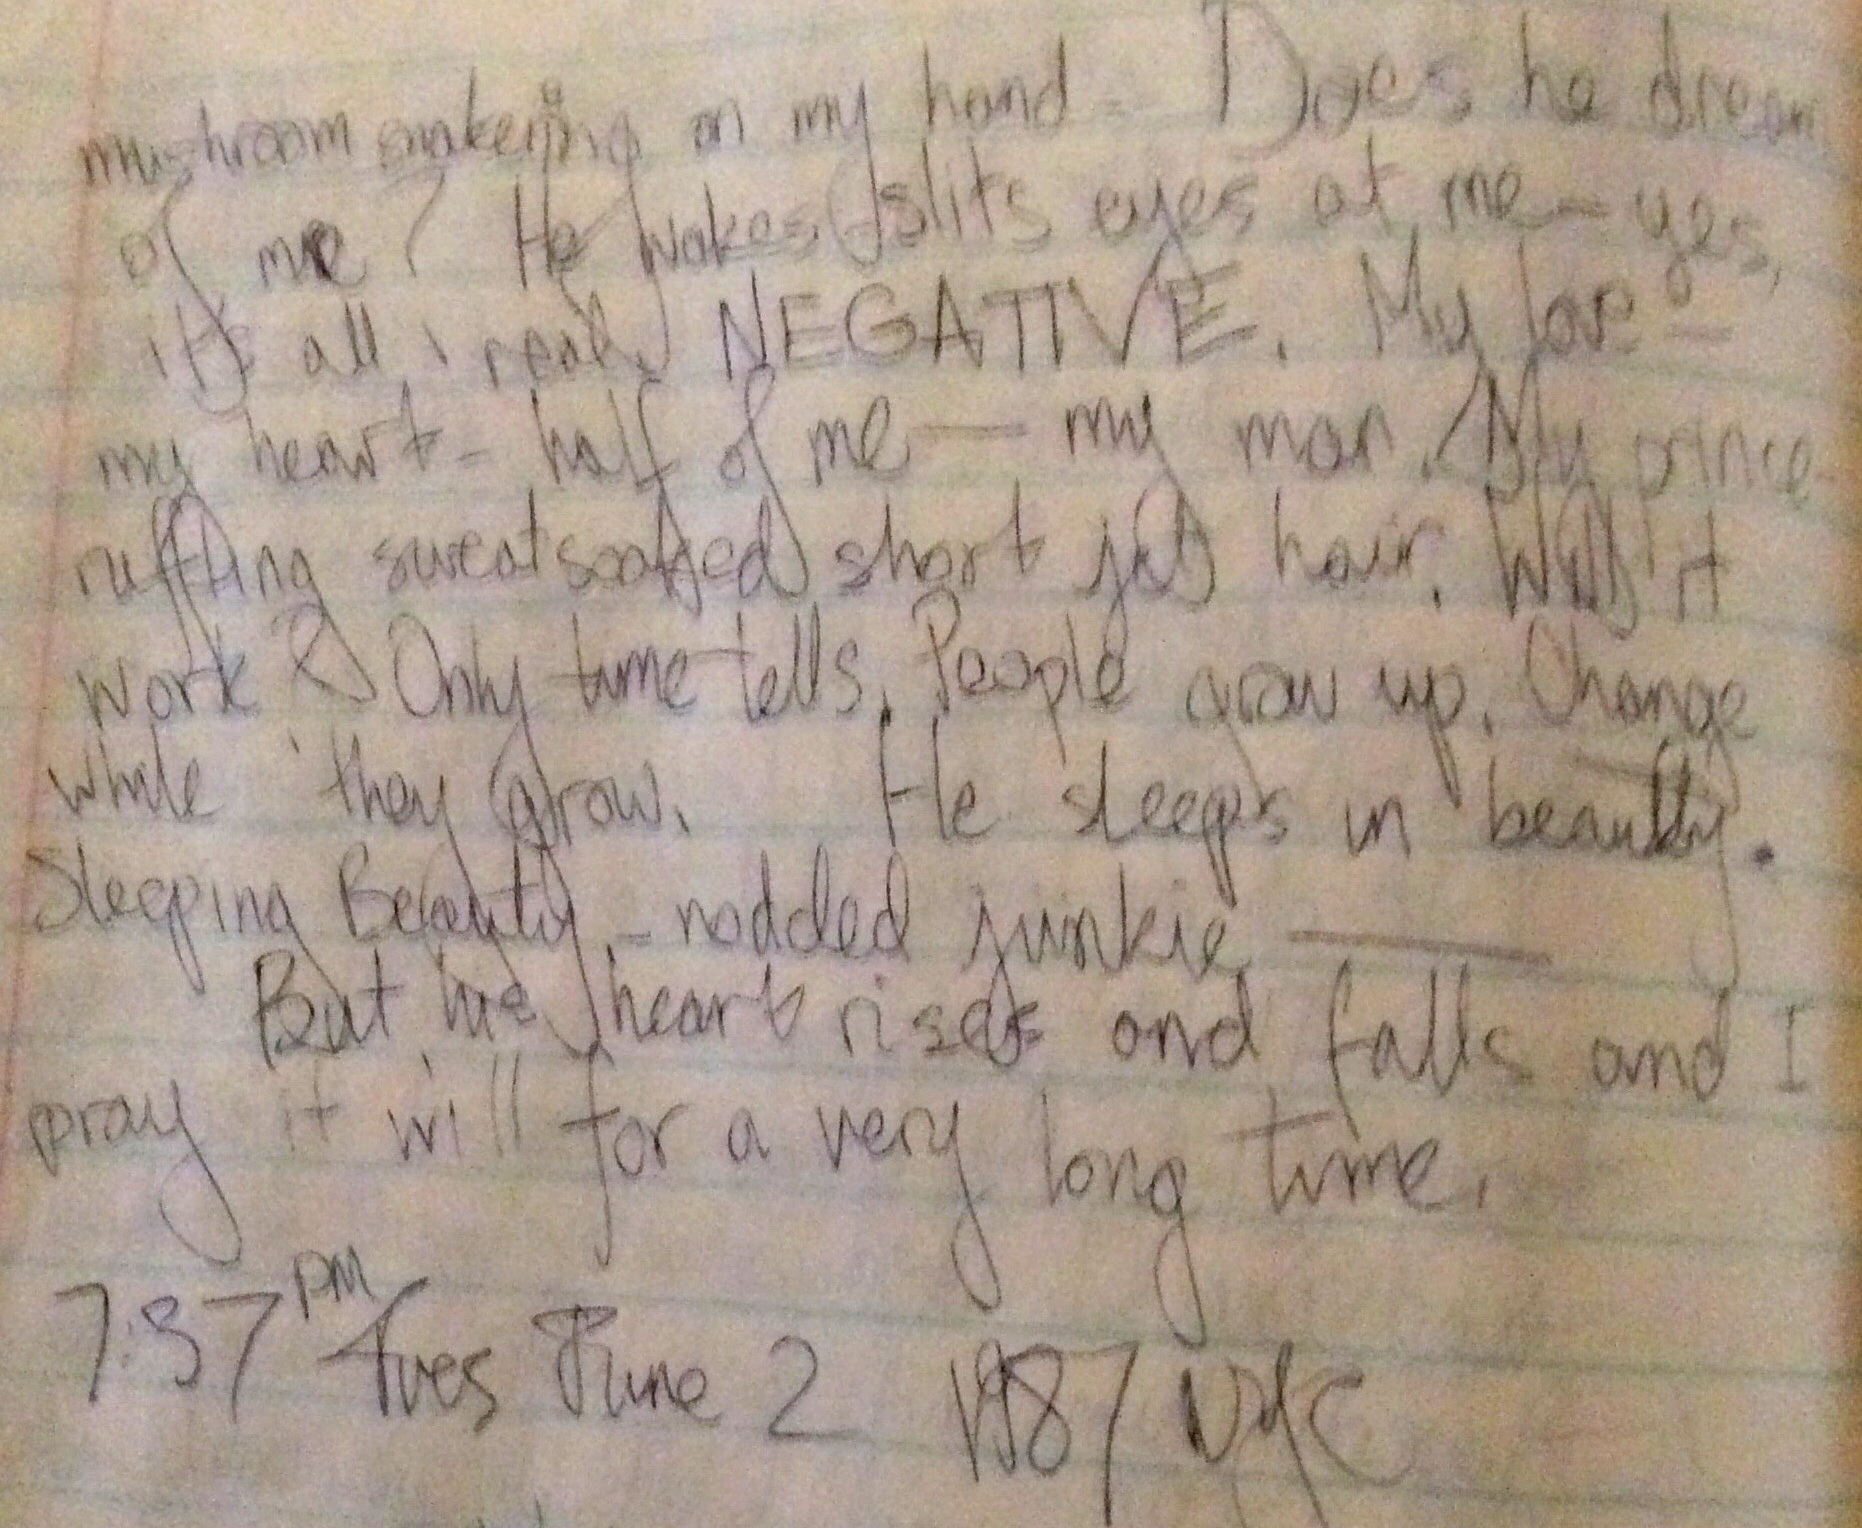 mushroom on my hand - Does he dream
of me? He wakes, slits eyes at me - yes,
it's all real. NEGATIVE. My love -
my heart - half of me — my man. My prince
ruffling sweatsoaked short jet hair. Will it
work? Only time tells. People grow up. Change
while they grow. He sleeps in beauty.
Sleeping Beauty - nodded junkie —
But his heart rises and falls and I
pray it will for a very long time.
7:37 PM Tues June 2 1987 NYC